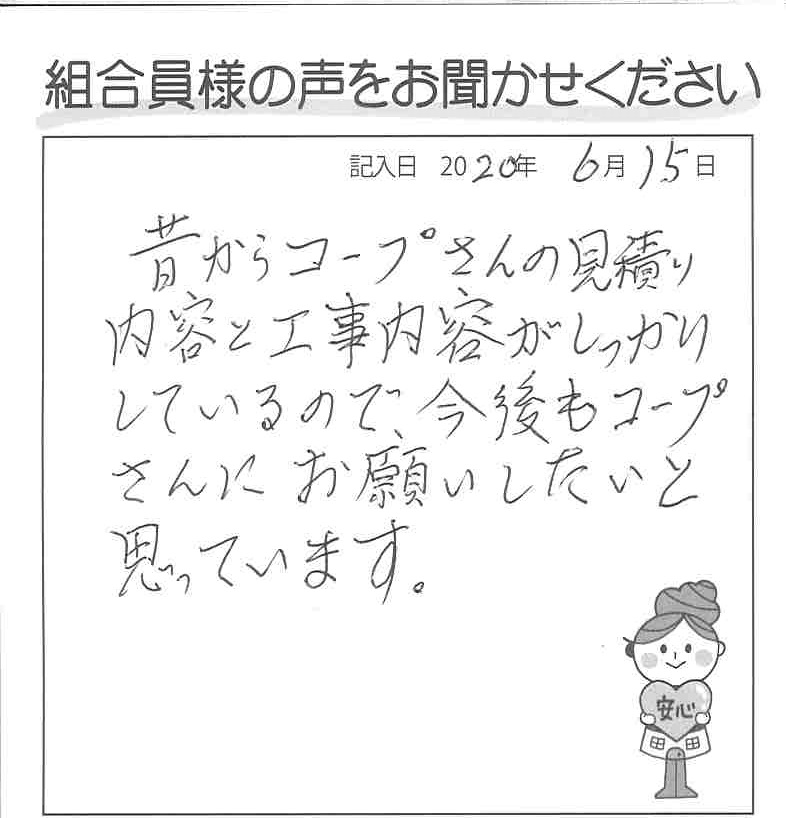 組合員様の声をお聞かせください
記入日 2020年 6月15日
昔からコープさんの見積り
内容と工事内容がしっかり
しているので、今後もコープ
さんにお願いしたいと
思っています。
安心